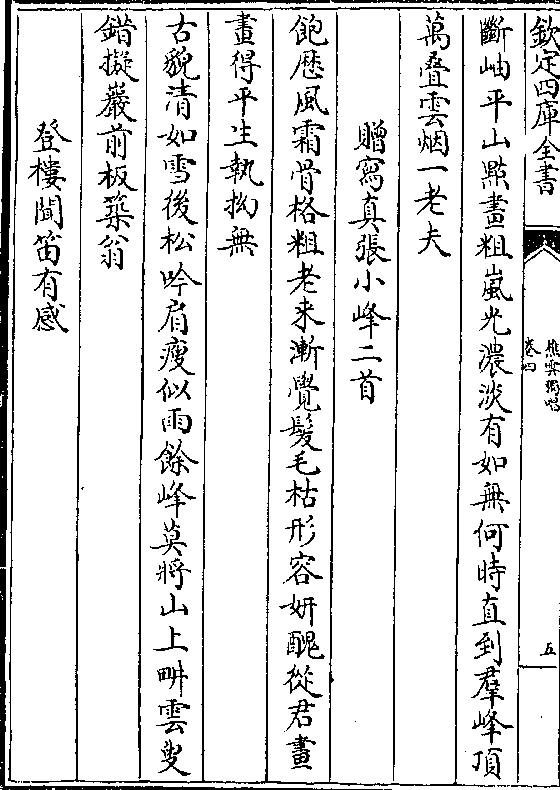 欽定四庫全書
樵雲獨唱
卷四
五
斷岫平山㸃畫粗嵐光濃淡有如無何時直到羣峰頂
萬疊雲烟一老夫
贈寫真張小峰二首
飽歴風霜骨格粗老来漸覺髮毛枯形容妍醜從君畫
畫得平生執拗無
古貌清如雪後松吟肩瘦似雨餘峰莫將山上畊雲叟
錯擬巖前板築翁
登樓聞笛有感